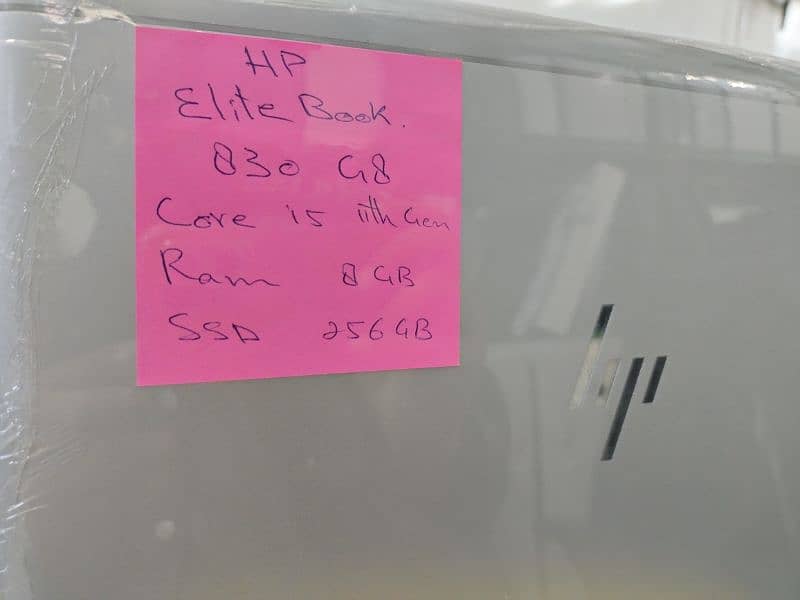 HP
Elite Book.
830 G8
Core i5 11th Gen
Ram 8 GB
SSD 256 GB
hp